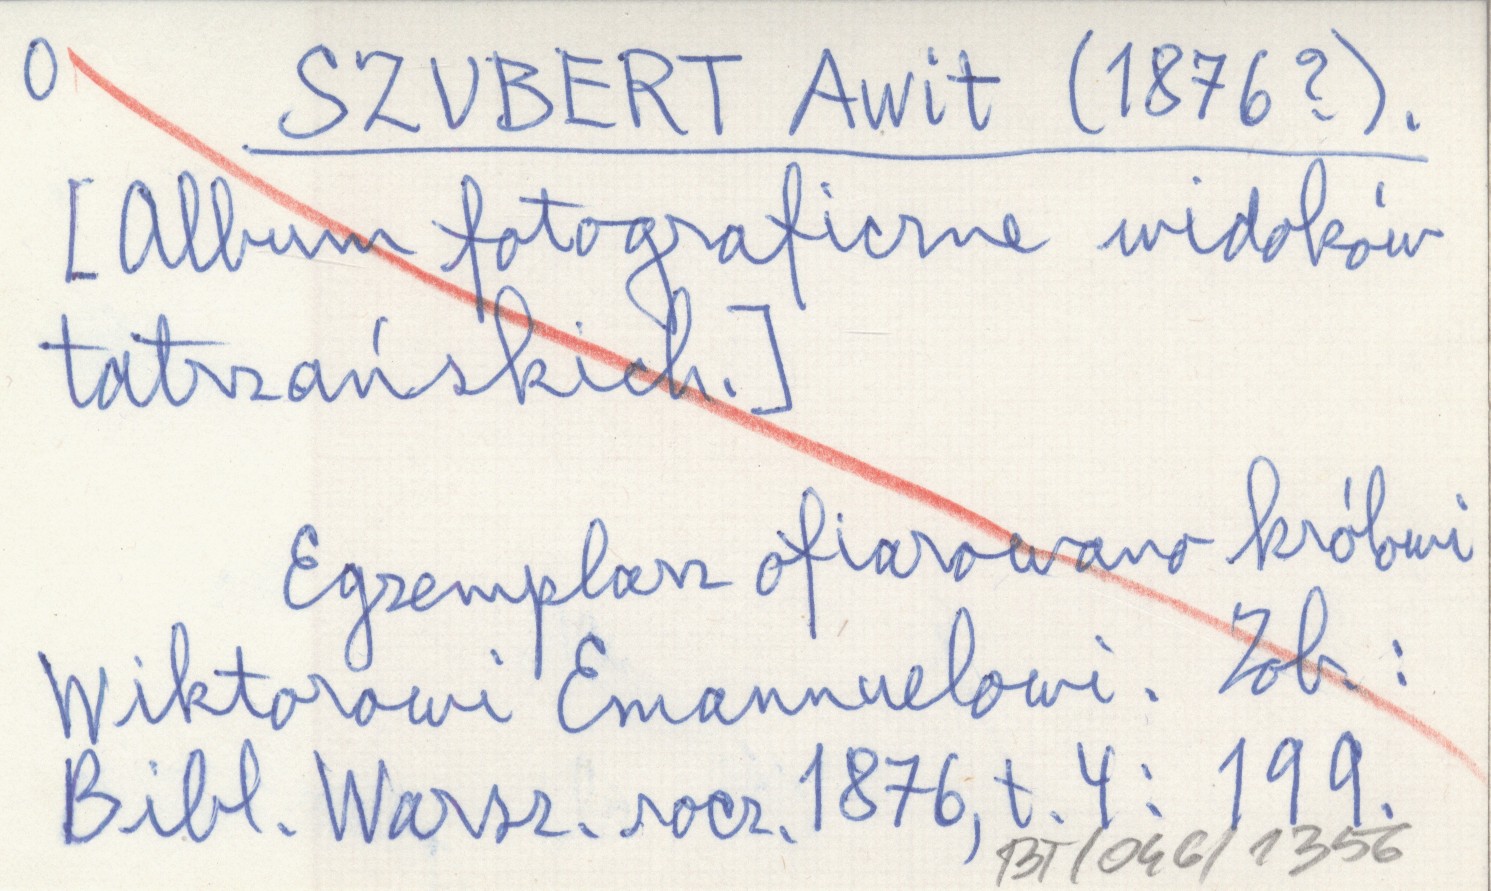 0 SZUBERT Awit (1876?).
[Album fotograficzne widoków
tatrzańskich.]
Egzemplarz ofiarowano królowi
Wiktorowi Emannuelowi. Zob.:
Bibl. Warsz. rocz. 1876, t. 4: 199.
BT/046/1356